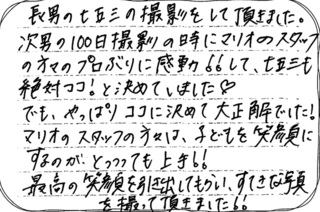 長男の七五三の撮影をして頂きました。
次男の100日撮影の時にマリオのスタッフ
の方々のプロぶりに感動!!して、七五三も
絶対ココ!と決めていました♡
でも、やっぱりココに決めて大正解でした!
マリオのスタッフの方々は、子どもを笑顔に
するのが、とっっっても上手!!
最高の笑顔を引き出してもらい、すてきな写真
を撮って頂きました!!